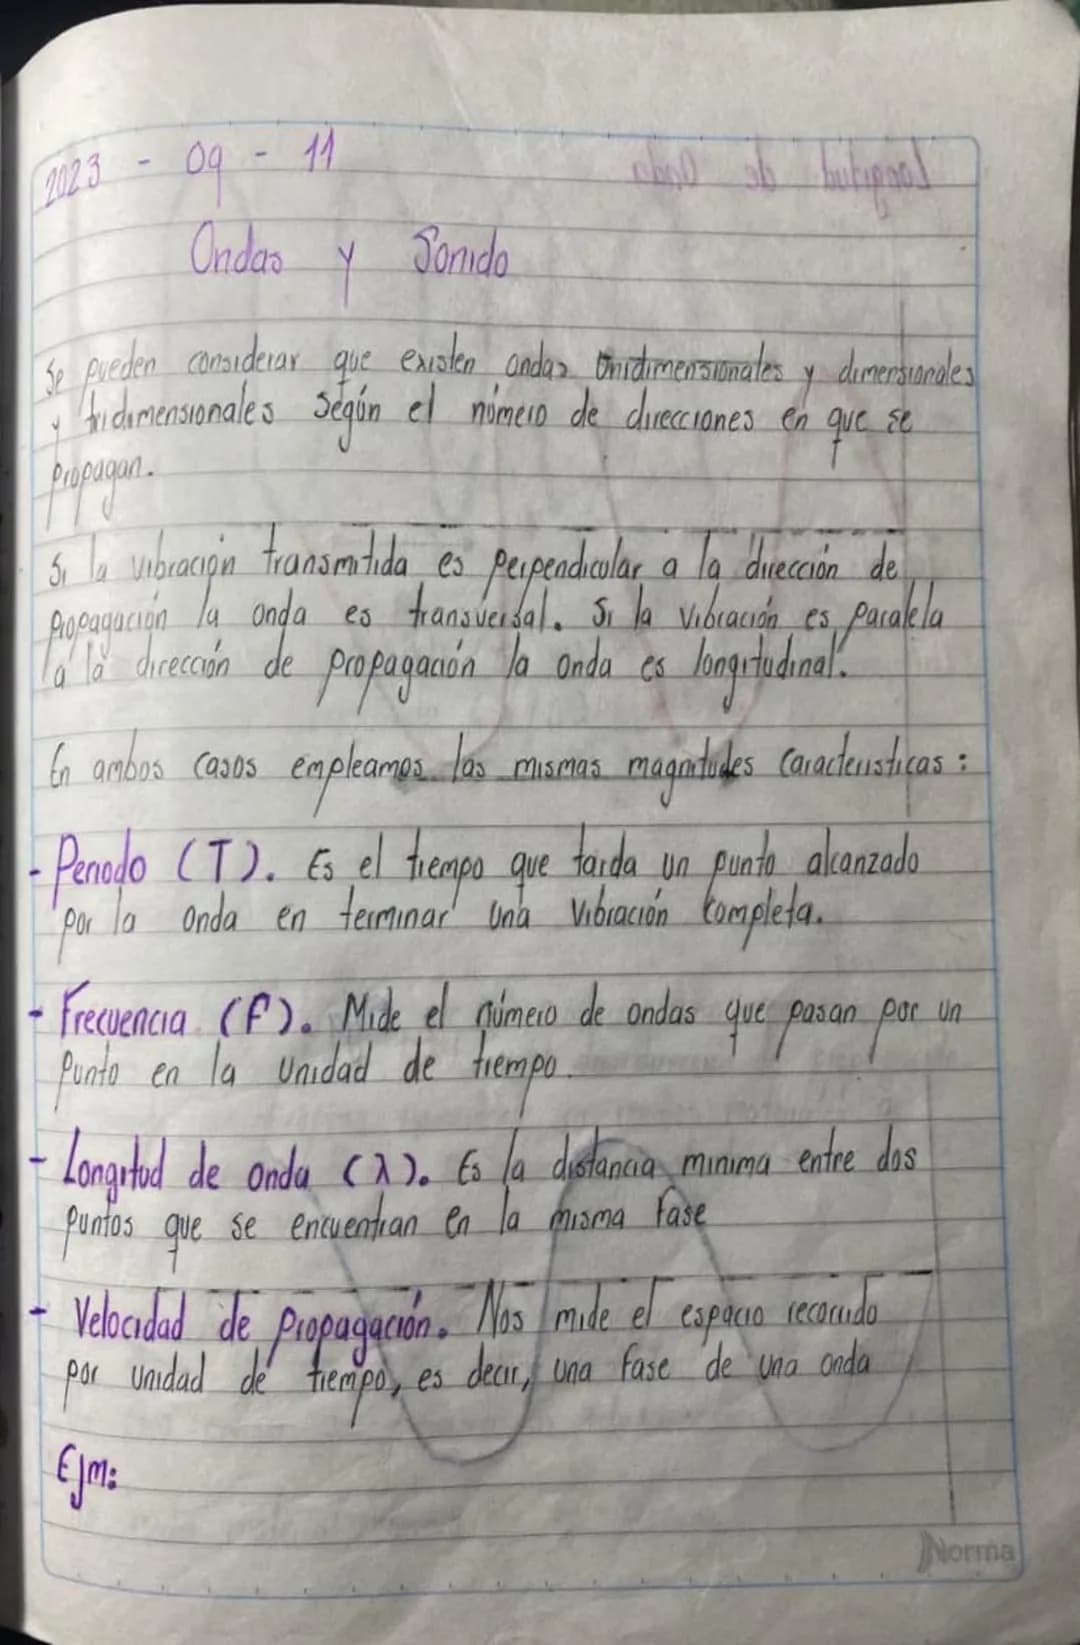 2023 - 09 - 11
Longitud de Onda
Ondas y Sonido
Se pueden considerar que existen ondas Unidimensionales y dimensionales
y tridimensionales Según el número de direcciones en que se
propagan.
Si la vibración transmitida es perpendicular a la dirección de
propagación la onda es transversal. Si la vibración es paralela
a la dirección de propagación la onda es longitudinal.
En ambos casos empleamos las mismas magnitudes caracteristicas:
- Periodo (T). Es el tiempo que tarda un punto alcanzado
por la onda en terminar una vibración completa.
- Frecuencia (F). Mide el número de ondas que pasan por un
punto en la unidad de tiempo.
- Longitud de onda (λ). Es la distancia minima entre dos
puntos que se encuentran en la misma fase
- Velocidad de propagación. Nos mide el espacio recorrido
por unidad de tiempo, es decir, una fase de una onda
Ejm:
Norma